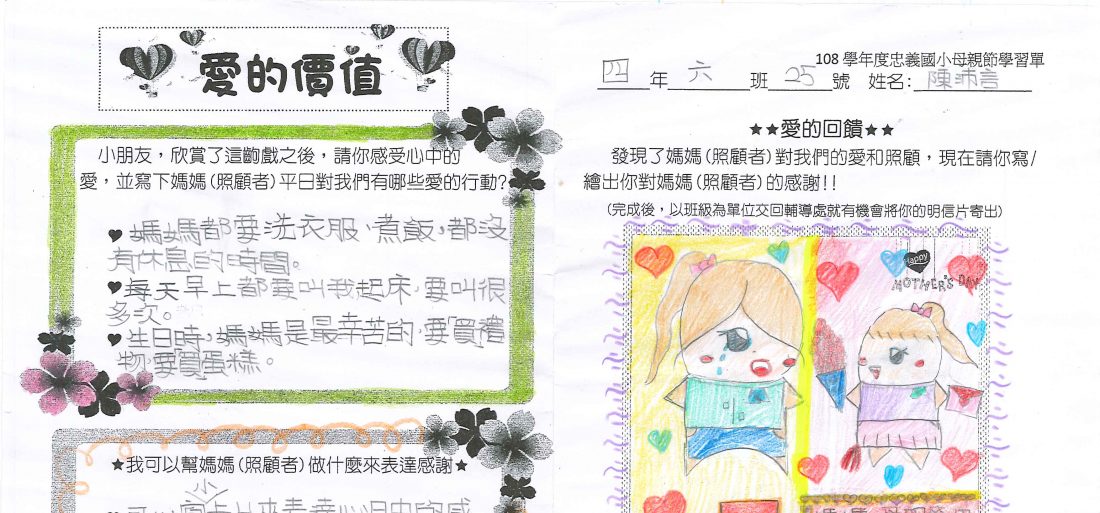 愛的價值
小朋友，欣賞了這齣戲之後，請你感受心中的
愛，並寫下媽媽(照顧者)平日對我們有哪些愛的行動?
♥媽媽都要洗衣服、煮飯，都沒
有休息的時間。
♥每天早上都要叫我起床，要叫很
多次。
♥生日時，媽媽是最辛苦的，要買禮
物，要買蛋糕。
★我可以幫媽媽(照顧者)做什麼來表達感謝★
小
108 學年度忠義國小母親節學習單
四年六班25號 姓名:陳沛言
★★愛的回饋★★
發現了媽媽(照顧者)對我們的愛和照顧，現在請你寫/
繪出你對媽媽(照顧者)的感謝!!
(完成後，以班級為單位交回輔導處就有機會將你的明信片寄出)
Happy
MOTHER'S DAY